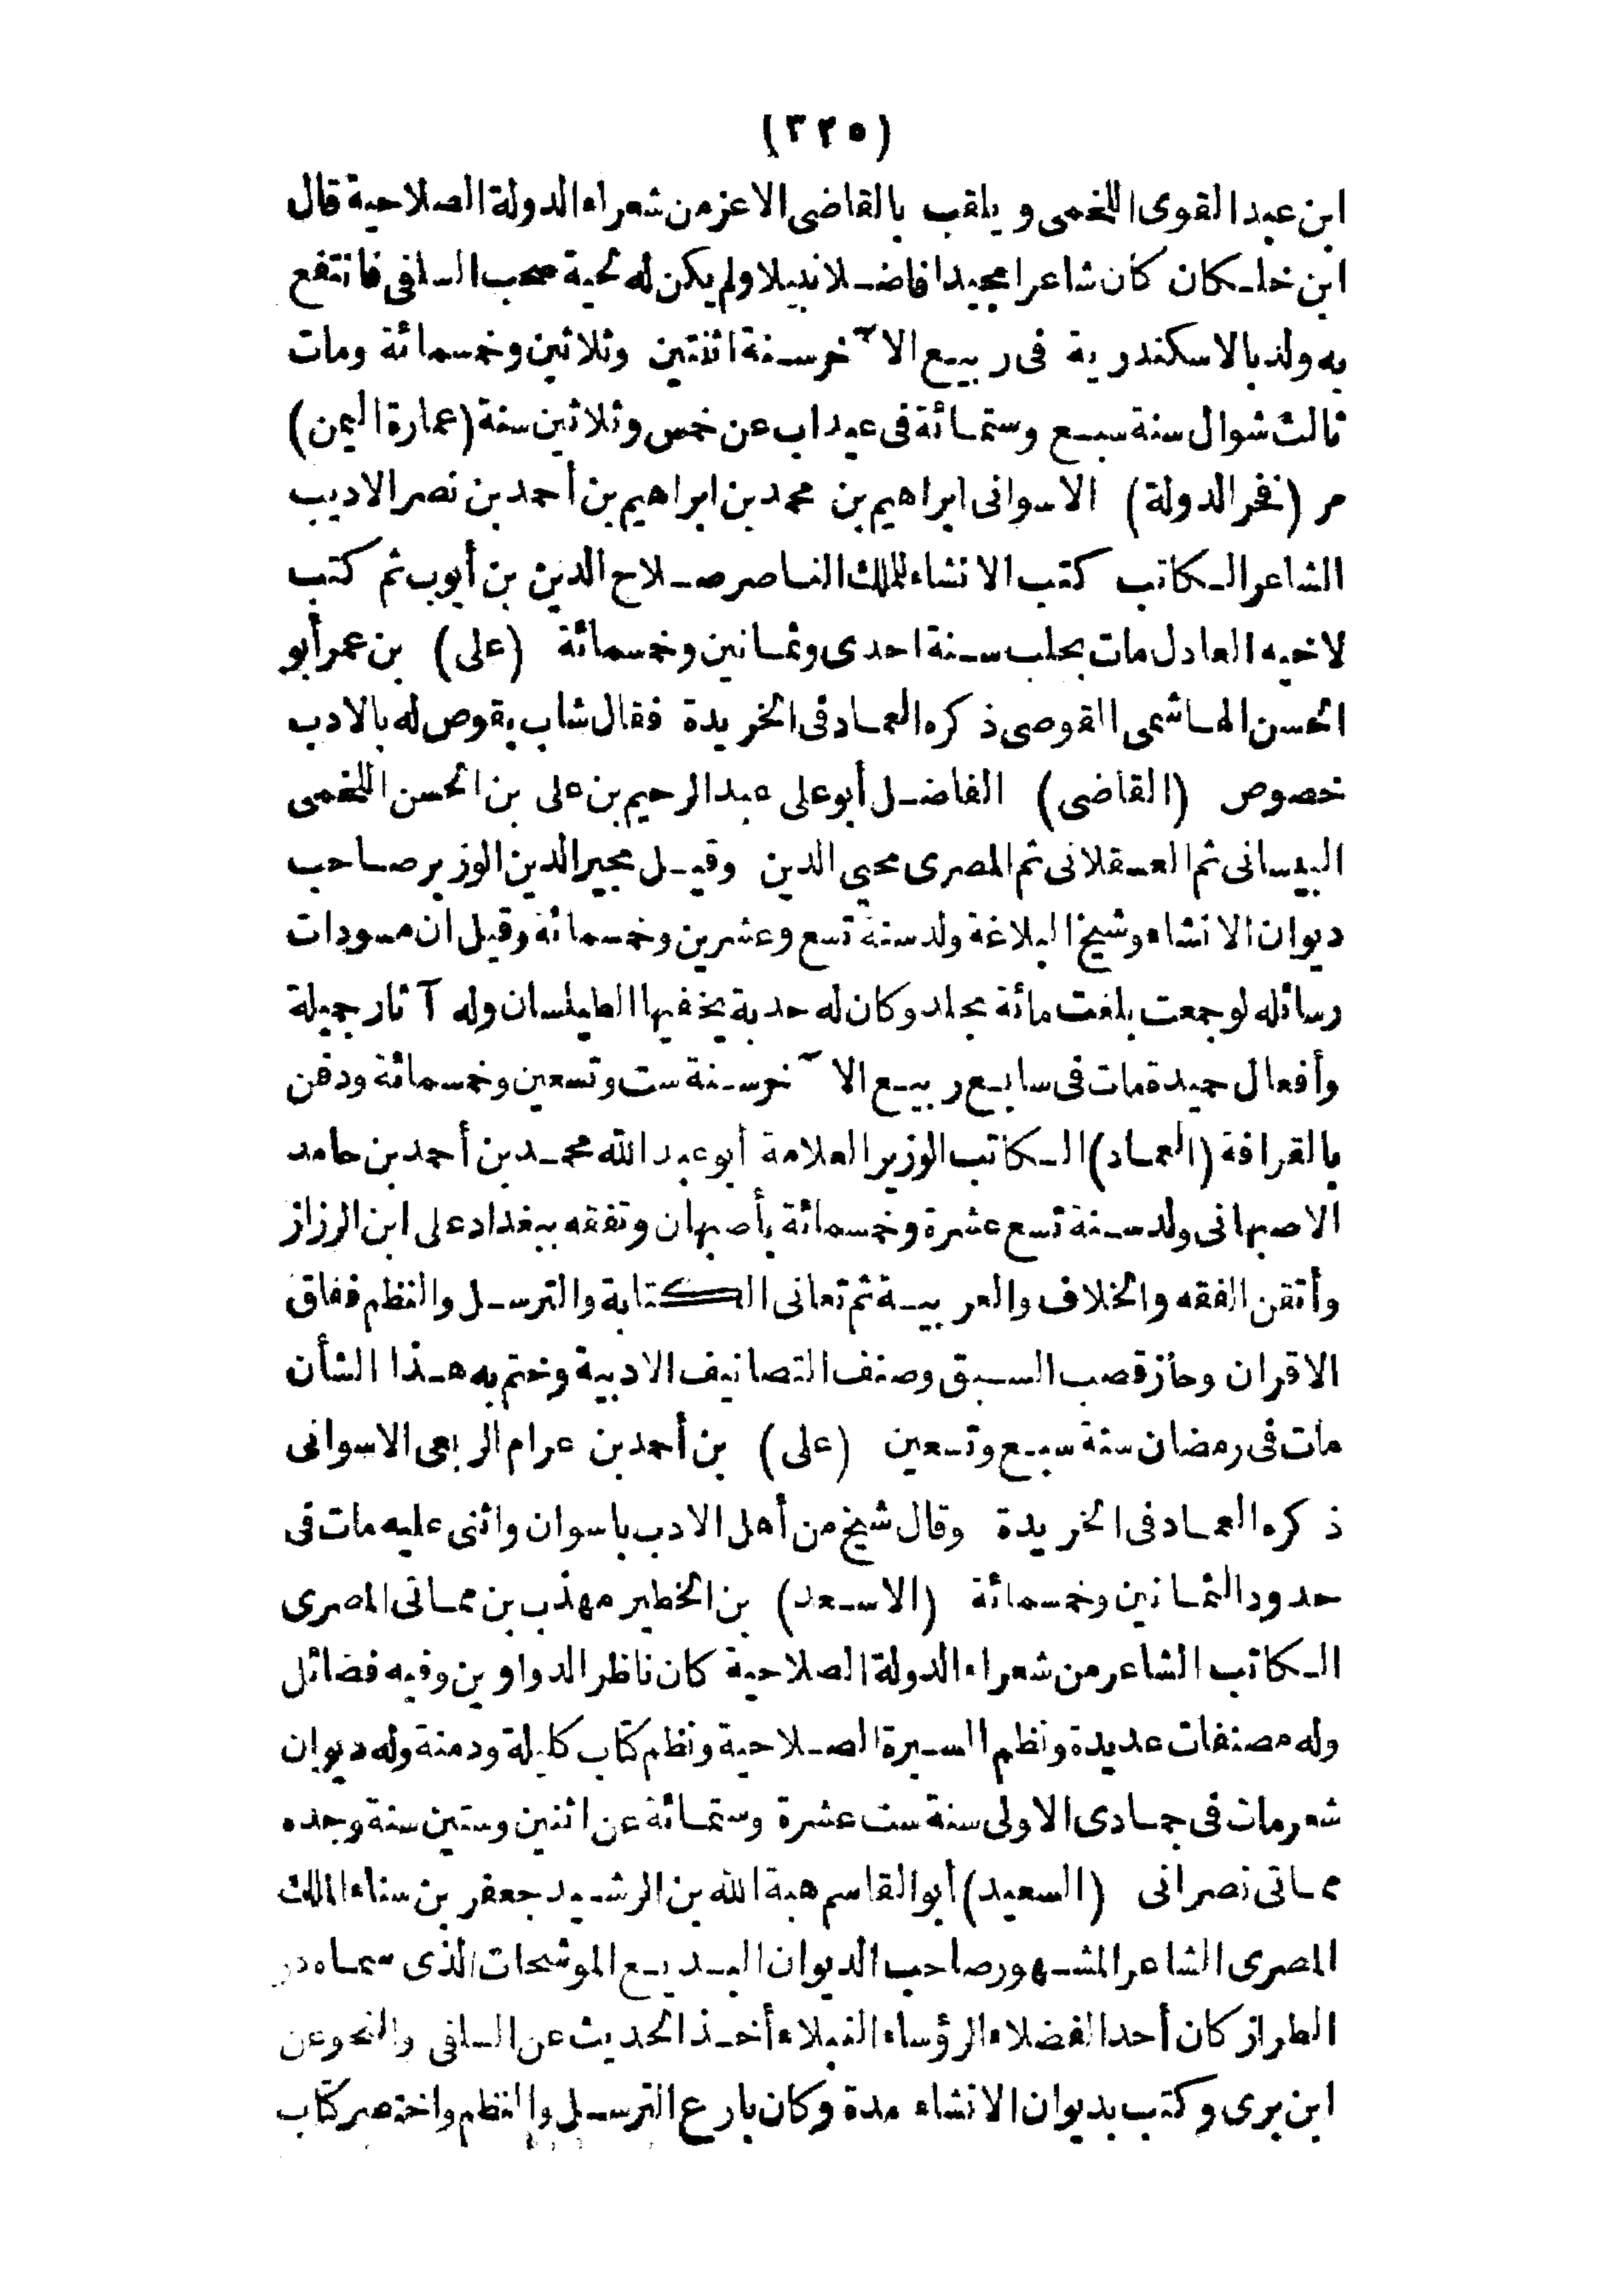 (٣٢٥)
ابن عبد القوى اللخمى ويلقب بالقاضى الاعز من شعراء الدولة الصلاحية قال
ابن خلكان كان شاعرا مجيدا فاضلا نبيلا ولم يكن له لحية صحب السلفى فانتفع
به ولد بالاسكندرية فى ربيع الآخر سنة اثنتين وثلاثين وخمسمائة ومات
ثالث شوال سنة سبع وستمائة فى عيداب عن خمس وثلاثين سنة (عمارة اليمن)
مر (فخر الدولة) الاسوانى ابراهيم بن محمد بن ابراهيم بن أحمد بن نصر الاديب
الشاعر الكاتب كتب الانشاء للملك الناصر صلاح الدين بن أيوب ثم كتب
لاخيه العادل مات بحلب سنة احدى وثمانين وخمسمائة (على) بن عمر أبو
الحسن الهاشمى القوصى ذكره العماد فى الخريدة فقال شاب بقوص له بالادب
خصوص (القاضى) الفاضل أبو على عبد الرحيم بن على بن الحسن اللخمى
البيسانى ثم العسقلانى ثم المصرى محيى الدين وقيل مجير الدين الوزير صاحب
ديوان الانشاء وشيخ البلاغة ولد سنة تسع وعشرين وخمسمائة وقيل ان مسودات
رسائله لو جمعت بلغت مائة مجلد وكان له حدبة يخفيها الطيلسان وله آثار جميلة
وأفعال حميدة مات فى سابع ربيع الآخر سنة ست وتسعين وخمسمائة ودفن
بالقرافة (العماد) الكاتب الوزير العلامة أبو عبد الله محمد بن أحمد بن حامد
الاصبهانى ولد سنة تسع عشرة وخمسمائة بأصبهان وتفقه ببغداد على ابن الرزاز
وأتقن الفقه والخلاف والعربية ثم تعانى الكتابة والترسل والنظم ففاق
الاقران وحاز قصب السبق وصنف التصانيف الادبية وختم به هذا الشأن
مات فى رمضان سنة سبع وتسعين (على) بن أحمد بن عرام الربعى الاسوانى
ذكره العماد فى الخريدة وقال شيخ من أهل الادب باسوان واثنى عليه مات فى
حدود الثمانين وخمسمائة (الاسعد) بن الخطير مهذب بن مماتى المصرى
الكاتب الشاعر من شعراء الدولة الصلاحية كان ناظر الدواوين وفيه فضائل
وله مصنفات عديدة ونظم السيرة الصلاحية ونظم كتاب كليلة ودمنة وله ديوان
شعر مات فى جمادى الاولى سنة ست عشرة وستمائة عن اثنين وستين سنة وجده
مماتى نصرانى (السعيد) أبو القاسم هبة الله بن الرشيد جعفر بن سناء الملك
المصرى الشاعر المشهور صاحب الديوان البديع الموشحات الذى سماه در
الطراز كان أحد الفضلاء الرؤساء النبلاء أخذ الحديث عن السلفى والنحو عن
ابن برى وكتب بديوان الانشاء مدة وكان بارع الترسل والنظم واختصر كتاب